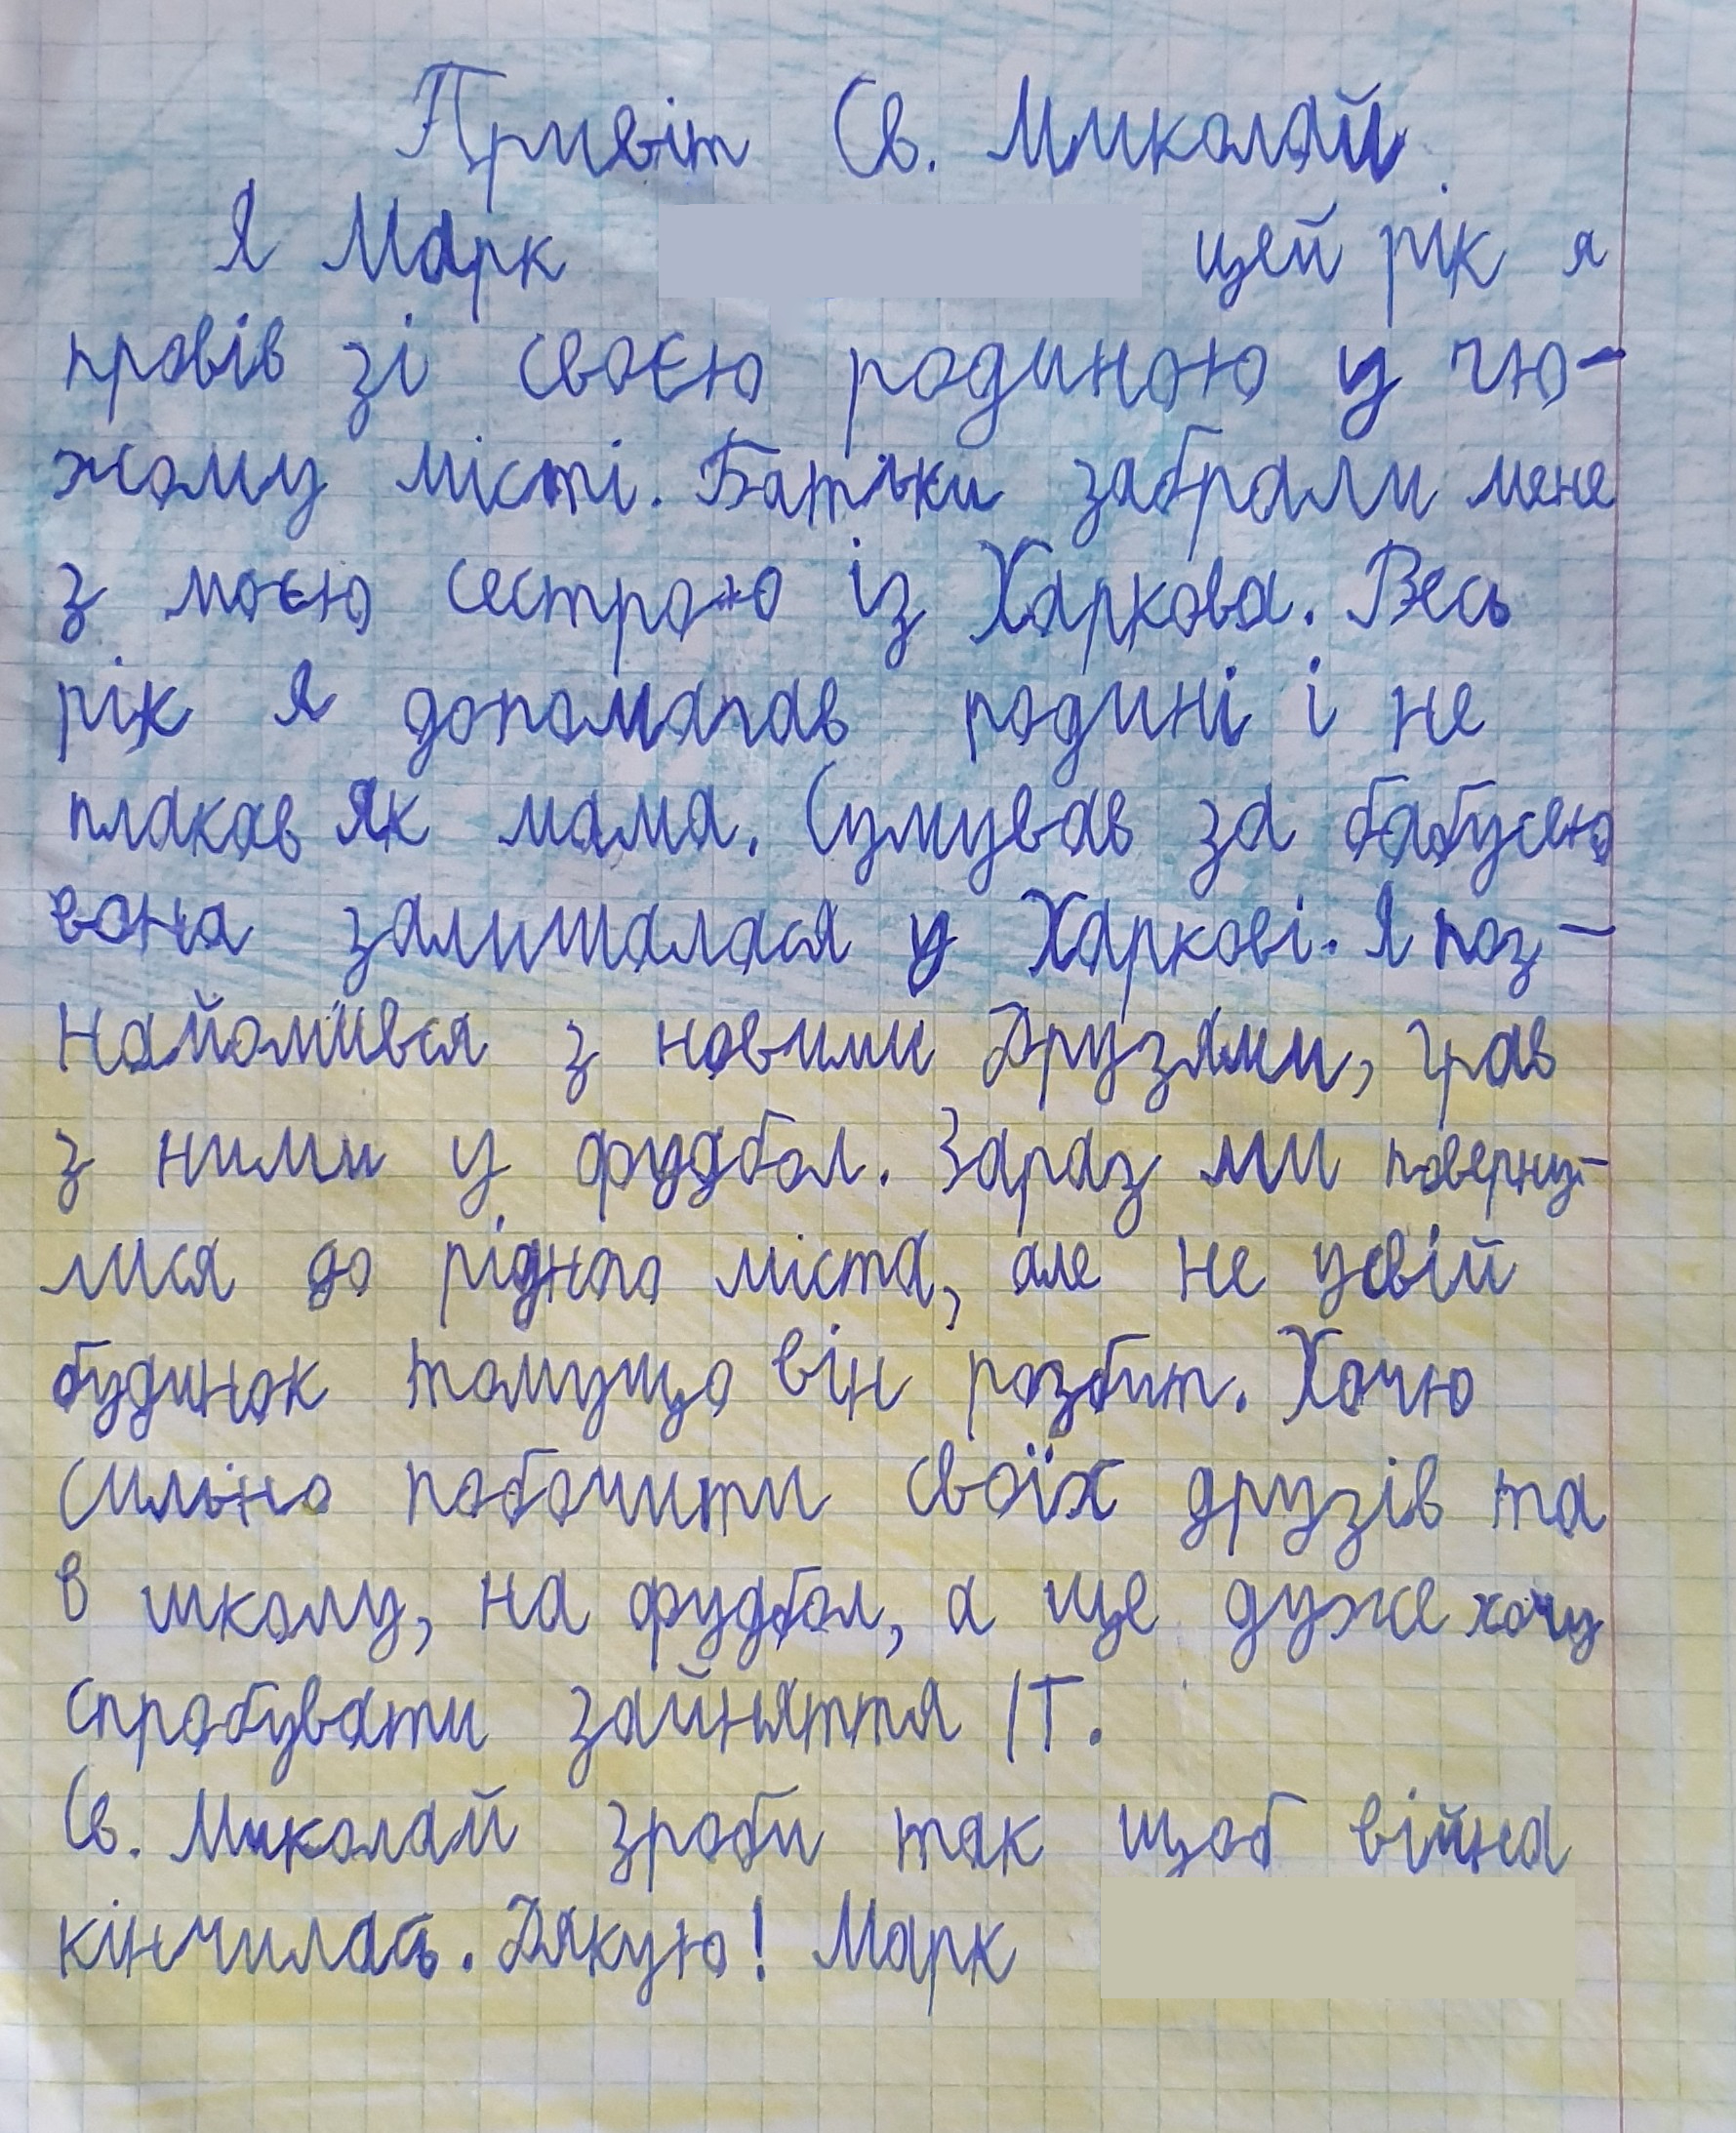 Привіт Св. Миколай
Я Марк цей рік я
провів зі своєю родиною у чю-
жому місті. Батьки забрали мене
з моєю сестрою із Харкова. Весь
рік я допомагав родині і не
плакав як мама. Сумував за бабусею
вона залишалася у Харкові. Я поз-
найомився з новими друзями, грав
з ними у фудбол. Зараз ми поверну-
лися до рідного міста, але не у свій
будинок томущо він розбит. Хочю
сильно побачити своїх друзів та
в школу, на фудбол, а ще дуже хочу
спробувати зайняття ІТ.
Св. Миколай зроби так щоб війна
кінчилась. Дякую! Марк